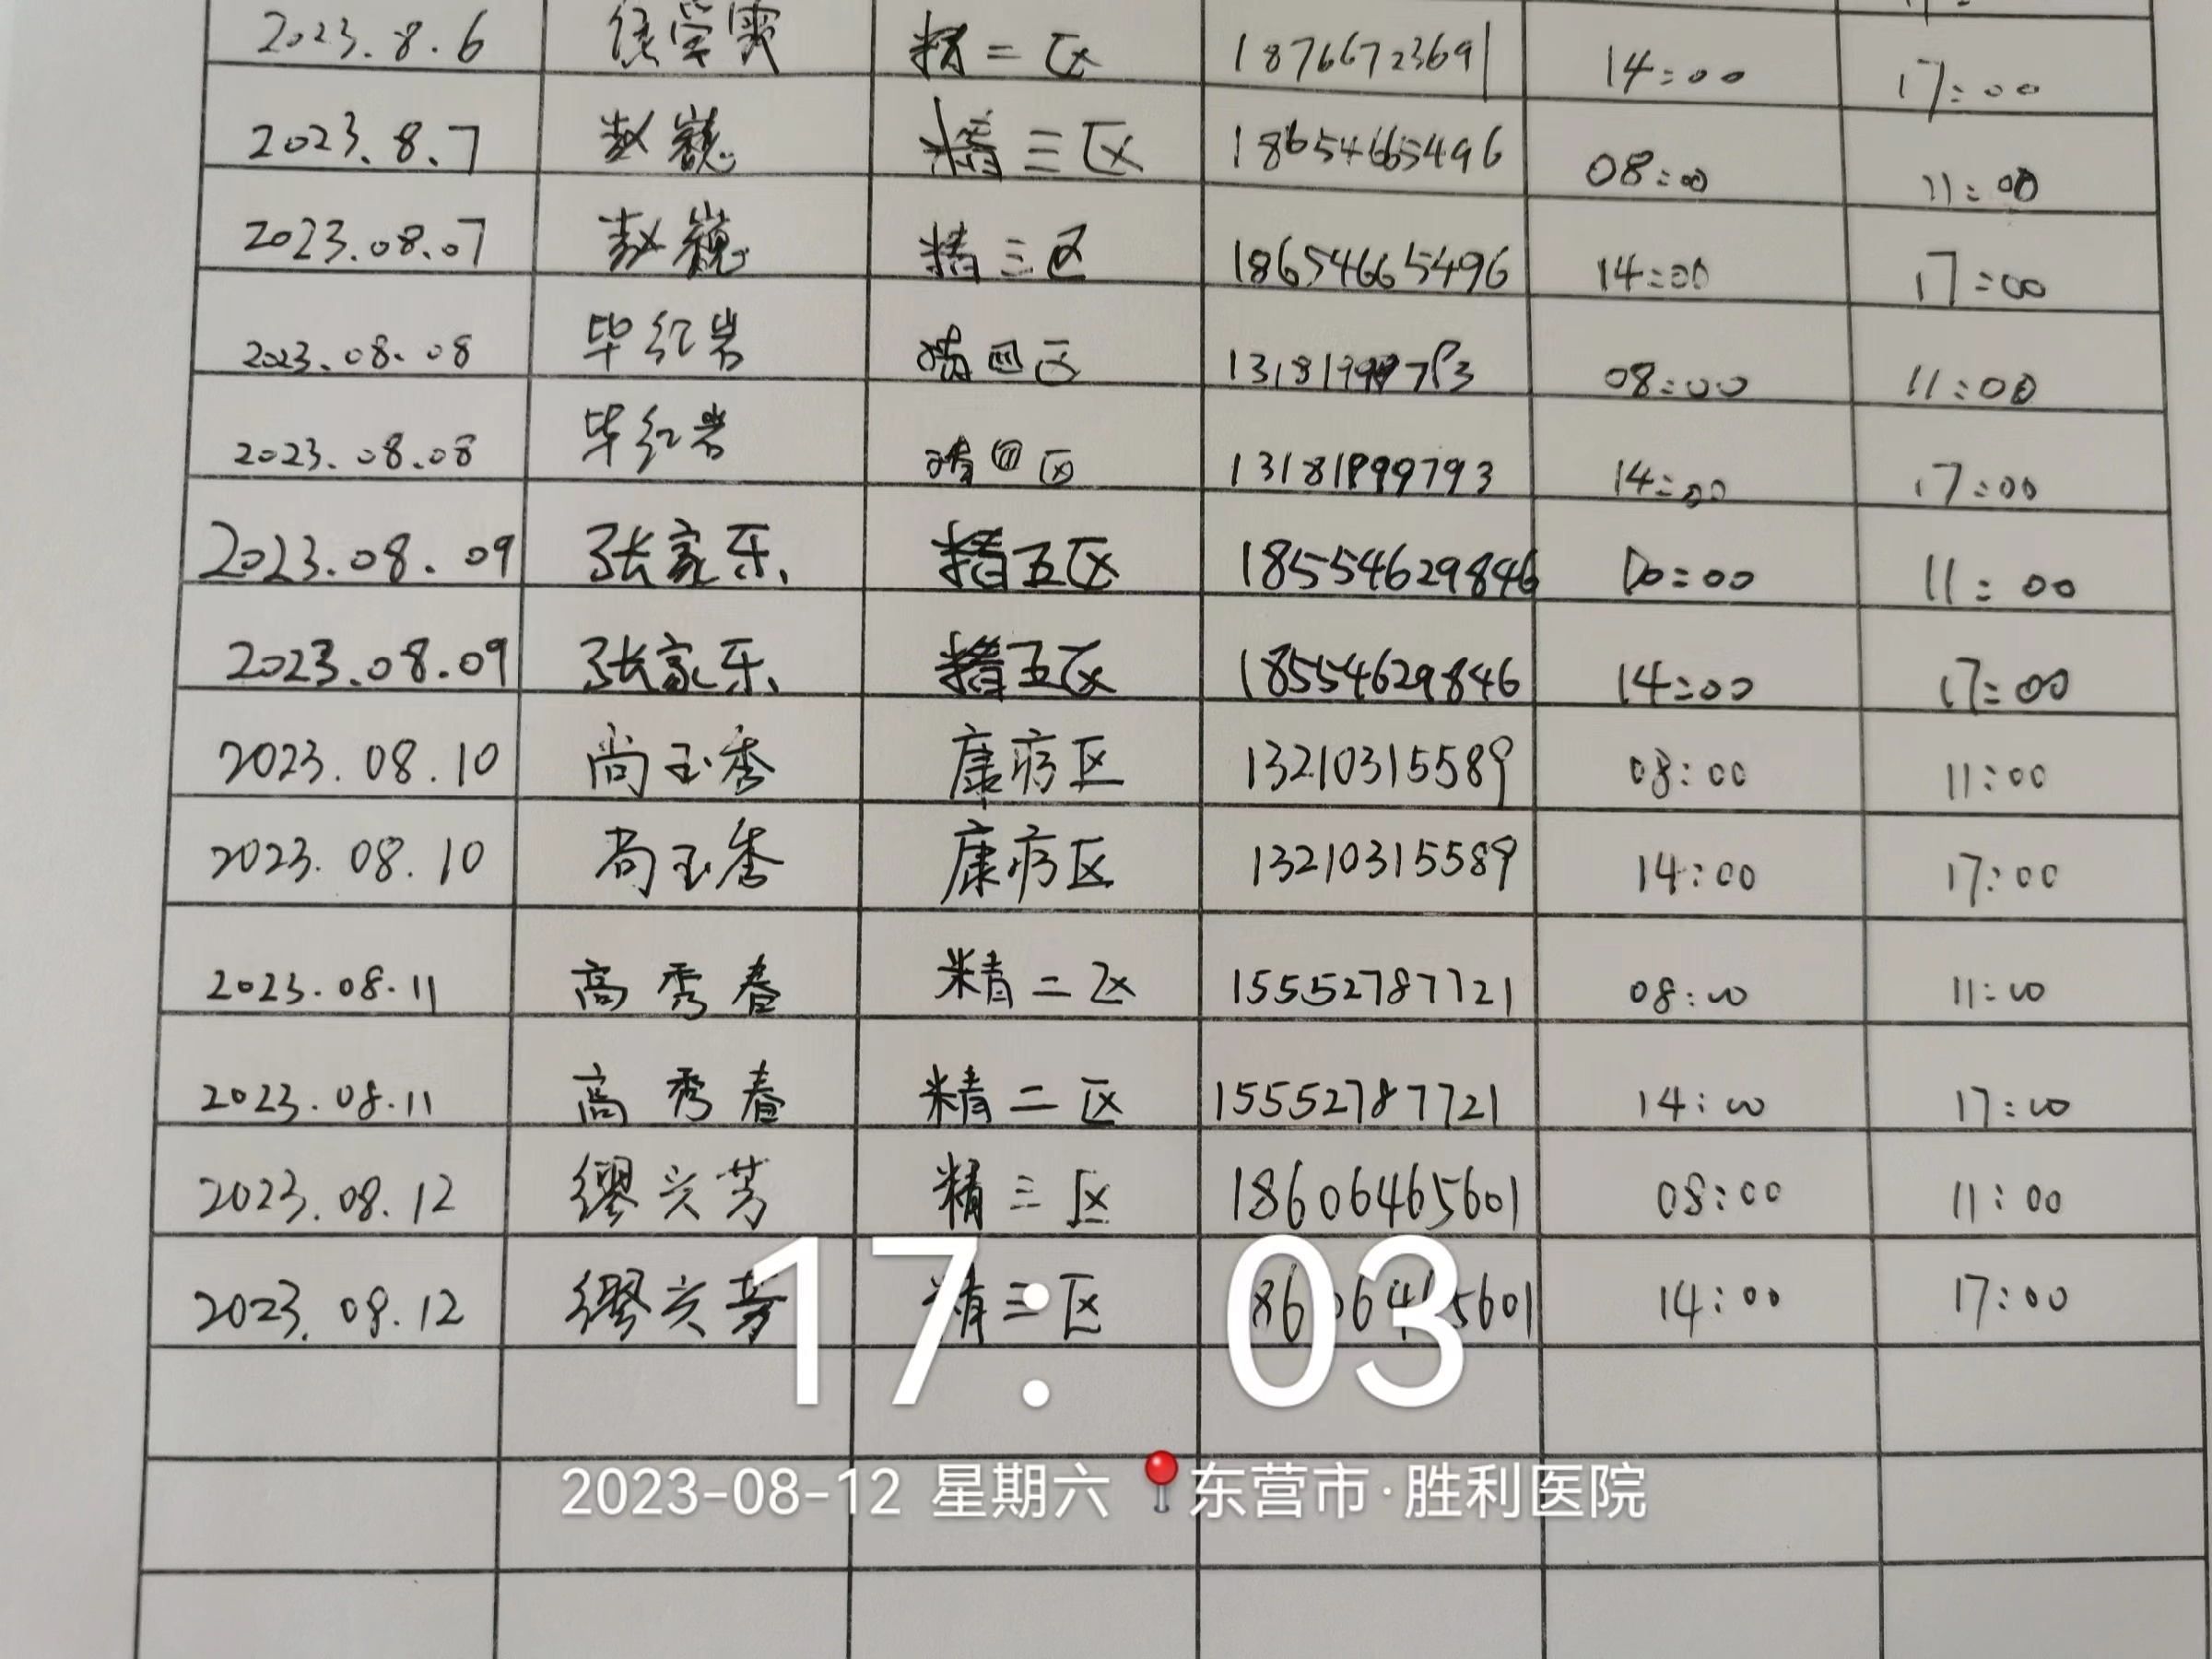 2023.8.6 精二区 18766723691 14:00 17:00
2023.8.7 赵巍 精三区 18654665496 08:00 11:00
2023.08.07 赵巍 精三区 18654665496 14:00 17:00
2023.08.08 毕红岩 精四区 08:00 11:00
2023.08.08 毕红岩 精四区 13181999793 14:00 17:00
2023.08.09 张家乐 精五区 18554629846 11:00
2023.08.09 张家乐 精五区 18554629846 14:00 17:00
2023.08.10 尚玉秀 康疗区 13210315589 08:00 11:00
2023.08.10 尚玉秀 康疗区 13210315589 14:00 17:00
2023.08.11 高秀春 精二区 15552787721 08:00 11:00
2023.08.11 高秀春 精二区 15552787721 14:00 17:00
2023.08.12 缪兴芳 精三区 18606465601 08:00 11:00
2023.08.12 缪兴芳 精三区 18606465601 14:00 17:00
17:03
2023-08-12 星期六 东营市·胜利医院